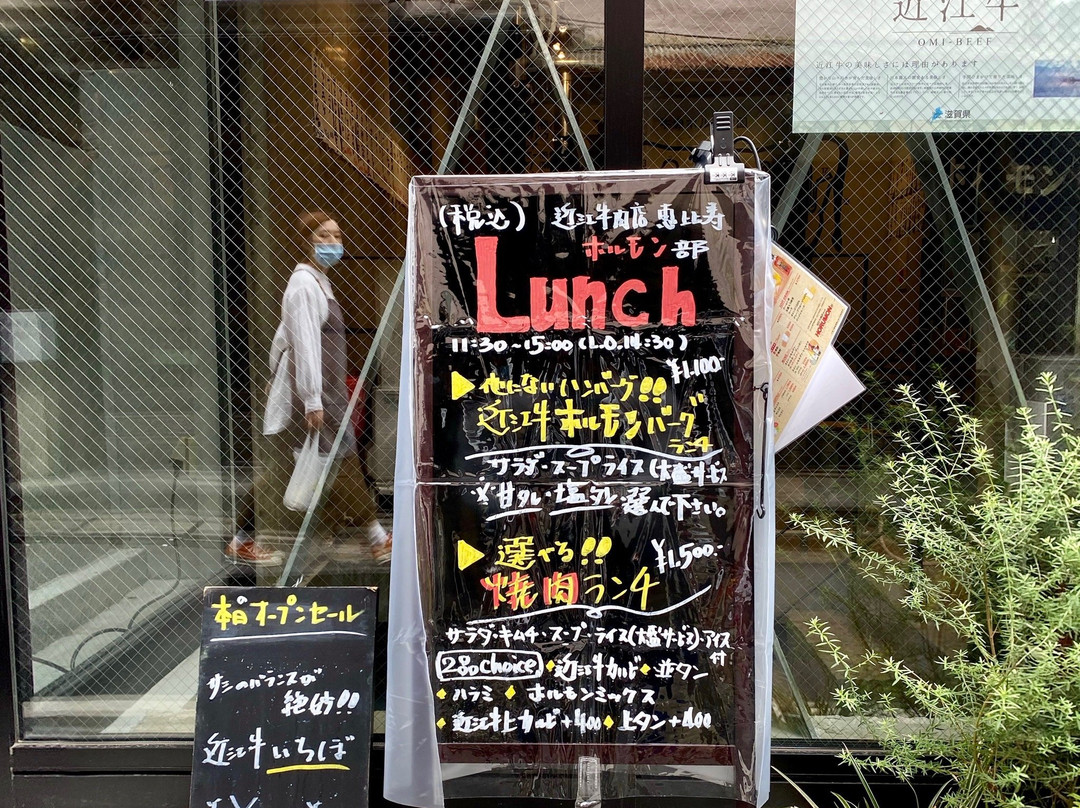 近江牛
OMI-BEEF
近江牛の美味しさには理由があります
滋賀県
モン
(税込) 近江牛肉店 恵比寿
ホルモン部
Lunch
11:30~15:00(L.O.14:30)
¥1,100-
▶他にないハンバーグ!!
近江牛ホルモンバーグ
ランチ
サラダ・スープライス(大盛サービス
※甘タレ・塩タレ選んで下さい。
▶選べる!!
¥1,500-
焼肉ランチ
サラダ・キムチ・スープ・ライス(大盛サービス)・アイス付
2品choice ◆近江牛カルビ ◆並タン
◆ハラミ ◆ホルモンミックス
◆近江牛上カルビ+400 ◆上タン+400
HORUMON
本日オープンセール
サシのバランスが
絶妙!!
近江牛いちぼ